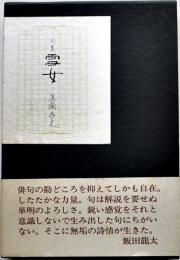 句集
雪女
俳句の勘どころを抑えてしかも自在。
したたかな力量。句は解説を要せぬ
単明のよろしさ。鋭い感覚をそれと
意識しないで生み出した句にちがい
ない。そこに無垢の詩情が生きた。
飯田龍太